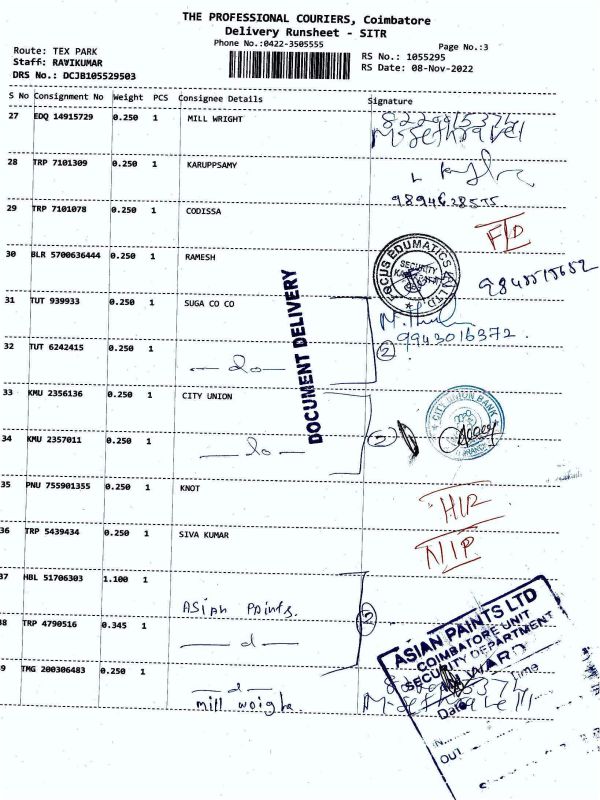 THE PROFESSIONAL COURIERS, Coimbatore
Delivery Runsheet - SITR
Phone No.:0422-3505555
Page No.:3
Route: TEX PARK
Staff: RAVIKUMAR
DRS No.: DCJB105529503
RS No.: 1055295
RS Date: 08-Nov-2022
S No Consignment No Weight PCS Consignee Details Signature
27 EDQ 14915729 0.250 1 MILL WRIGHT
28 TRP 7101309 0.250 1 KARUPPSAMY
9894628555
29 TRP 7101078 0.250 1 CODISSA
30 BLR 5700636444 0.250 1 RAMESH
FOCUS EDUMATICS
SECURITY
31 TUT 939933 0.250 1 SUGA CO CO
9943016372
32 TUT 6242415 0.250 1 — do —
2
DOCUMENT DELIVERY
33 KMU 2356136 0.250 1 CITY UNION
CITY UNION BANK
34 KMU 2357011 0.250 1 — do —
35 PNU 755901355 0.250 1 KNOT
36 TRP 5439434 0.250 1 SIVA KUMAR
NIP
37 HBL 51706303 1.100 1 Asian Paints.
38 TRP 4790516 0.345 1
39 TMG 200306483 0.250 1
mill
ASIAN PAINTS LTD
COIMBATORE UNIT
SECURITY DEPARTMENT
INWARD
Date
Time
IN
OUT